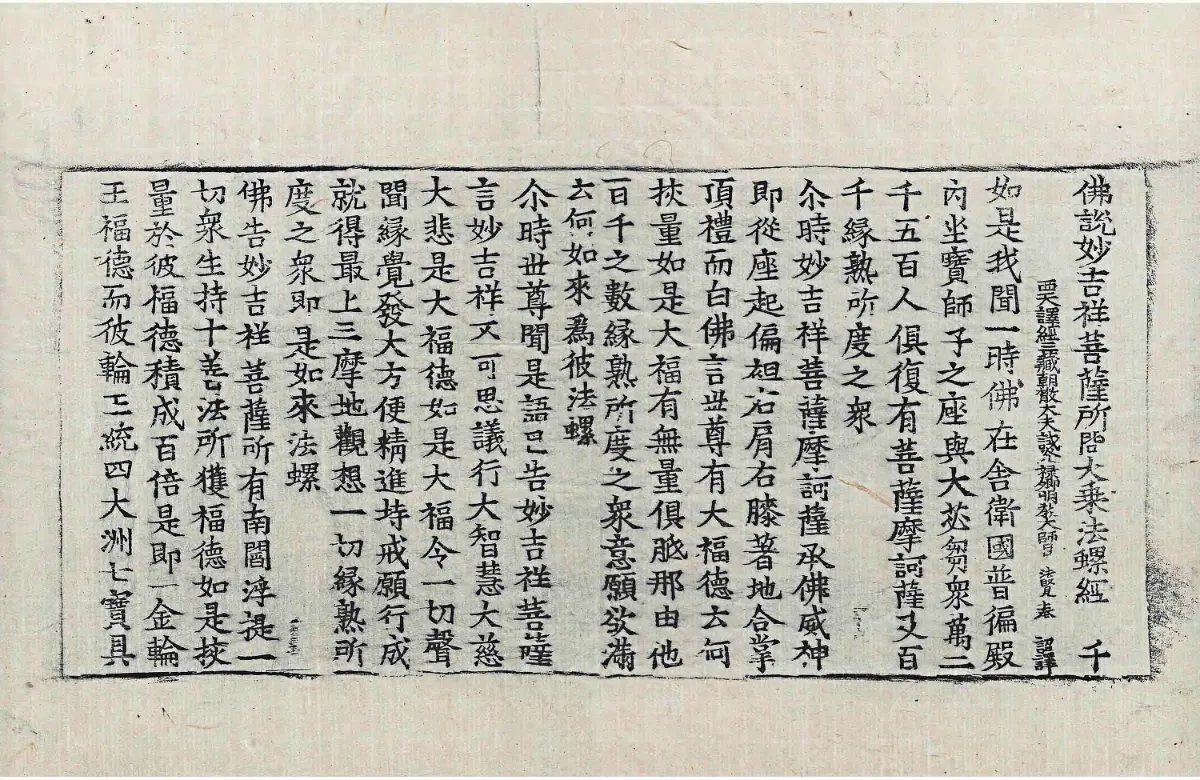 佛說妙吉祥菩薩所問大乗法螺經 千
西天譯經三藏朝散大夫試鴻臚卿明教大師臣 法賢 奉 詔譯
如是我聞一時佛在舎衛國普徧殿
内坐寳師子之座與大苾芻衆萬二
千五百人俱復有菩薩摩訶薩又百
千縁熟所度之衆
尒時妙吉祥菩薩摩訶薩承佛威神
即從座起偏袒右肩右膝著地合掌
頂禮而白佛言世尊有大福德云何
挾量如是大福有無量俱胝那由他
百千之數縁熟所度之衆意願欲滿
云何如來爲彼法螺
尒時世尊聞是語已告妙吉祥菩薩
言妙吉祥不可思議行大智慧大慈
大悲是大福德如是大福令一切聲
聞縁覺發大方便精進持戒願行成
就得最上三摩地觀想一切縁熟所
度之衆即是如來法螺
佛告妙吉祥菩薩所有南閻浮提一
切衆生持十善法所獲福德如是挾
量於彼福德積成百倍是即一金輪
王福德而彼輪王統四大洲七寳具